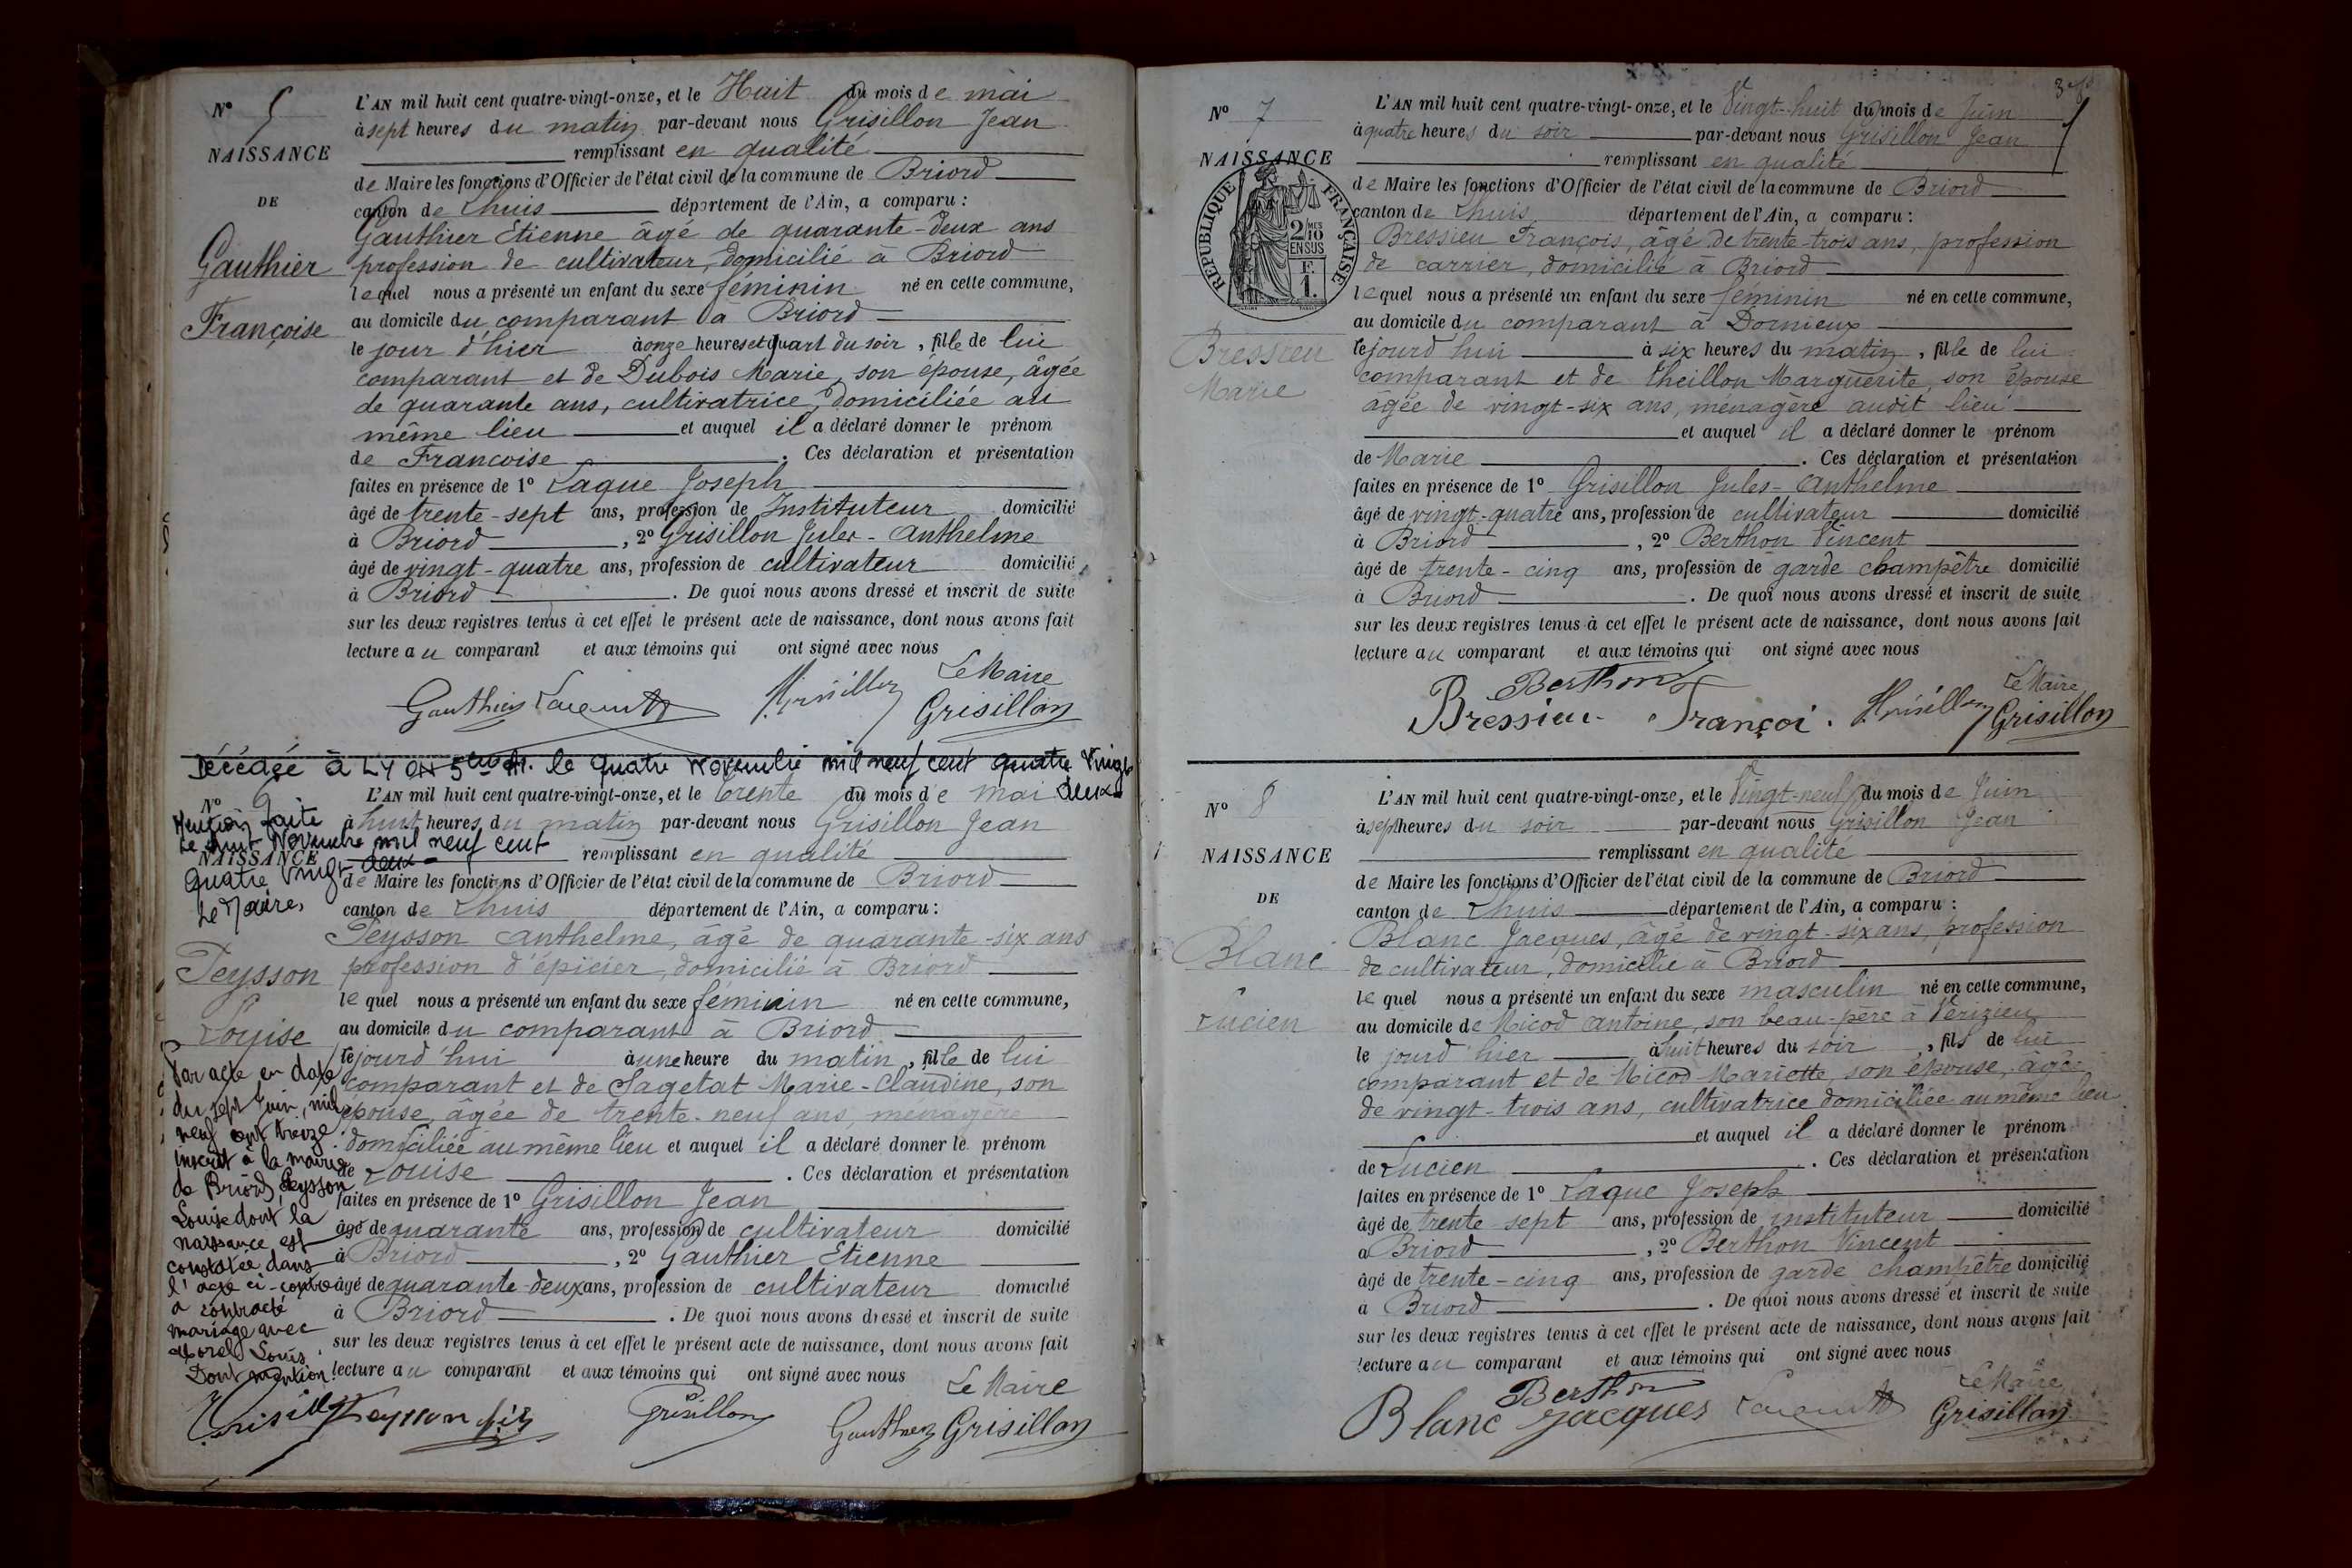 Nº 5
NAISSANCE
DE
Gauthier
Françoise
L'AN mil huit cent quatre-vingt-onze, et le Huit du mois de mai
à sept heures du matin par-devant nous Grisillon Jean
remplissant en qualité
de Maire les fonctions d'Officier de l'état civil de la commune de Briord
canton de Lhuis département de l'Ain, a comparu :
Gauthier Etienne âgé de quarante-deux ans
profession de cultivateur, domicilié à Briord
lequel nous a présenté un enfant du sexe féminin né en cette commune,
au domicile du comparant à Briord
le jour d'hier à onze heures et quart du soir, fille de lui
comparant et de Dubois Marie, son épouse, âgée
de quarante ans, cultivatrice, domiciliée au
même lieu et auquel il a déclaré donner le prénom
de Francoise. Ces déclaration et présentation
faites en présence de 1º Laque Joseph
âgé de trente-sept ans, profession de Instituteur domicilié
à Briord, 2º Grisillon Jules-Anthelme
âgé de vingt-quatre ans, profession de cultivateur domicilié
à Briord. De quoi nous avons dressé et inscrit de suite
sur les deux registres tenus à cet effet le présent acte de naissance, dont nous avons fait
lecture au comparant et aux témoins qui ont signé avec nous
Le Maire
Gauthier Grisillon Grisillon
Décédée à LYON 5ème le quatre Novembre mil neuf cent quatre vingt
deux
Nº
Mention faite
le huit Novembre mil neuf cent
quatre vingt-deux
Le Maire,
NAISSANCE
Teysson
Louise
Par acte en date
du sept Juin, mil
neuf cent treize
inscrit à la mairie
de Briord, Teysson
Louise dont la
naissance est
constatée dans
l'acte ci-contre
a contracté
mariage avec
Morel Louis.
Dont mention.
L'AN mil huit cent quatre-vingt-onze, et le trente du mois de mai
à huit heures du matin par-devant nous Grisillon Jean
remplissant en qualité
de Maire les fonctions d'Officier de l'état civil de la commune de Briord
canton de Lhuis département de l'Ain, a comparu :
Teysson Anthelme, âgé de quarante-six ans
profession d'épicier, domicilié à Briord
lequel nous a présenté un enfant du sexe féminin né en cette commune,
au domicile du comparant à Briord
le jourd'hui à une heure du matin, fille de lui
comparant et de Sagetat Marie-Claudine, son
épouse, âgée de trente-neuf ans, ménagère
domiciliée au même lieu et auquel il a déclaré donner le prénom
de Louise. Ces déclaration et présentation
faites en présence de 1º Grisillon Jean
âgé de quarante ans, profession de cultivateur domicilié
à Briord, 2º Gauthier Etienne
âgé de quarante-deux ans, profession de cultivateur domicilié
à Briord. De quoi nous avons dressé et inscrit de suite
sur les deux registres tenus à cet effet le présent acte de naissance, dont nous avons fait
lecture au comparant et aux témoins qui ont signé avec nous
Le Maire
Teysson Grisillon Gauthier Grisillon
Nº 7
NAISSANCE
RÉPUBLIQUE FRANÇAISE
2/10 MES
EN SUS
F.
1.
Bressieu
Marie
L'AN mil huit cent quatre-vingt-onze, et le Vingt-huit du mois de Juin
à quatre heures du soir par-devant nous Grisillon Jean
remplissant en qualité
de Maire les fonctions d'Officier de l'état civil de la commune de Briord
canton de Lhuis département de l'Ain, a comparu :
Bressieu François, âgé de trente-trois ans, profession
de carrier, domicilié à Briord
lequel nous a présenté un enfant du sexe féminin né en cette commune,
au domicile du comparant à Dornieux
le jourd'hui à six heures du matin, fille de lui
comparant et de Theillon Marguerite, son épouse
âgée de vingt-six ans, ménagère audit lieu
et auquel il a déclaré donner le prénom
de Marie. Ces déclaration et présentation
faites en présence de 1º Grisillon Jules-Anthelme
âgé de vingt-quatre ans, profession de cultivateur domicilié
à Briord, 2º Berthon Vincent
âgé de trente-cinq ans, profession de garde champêtre domicilié
à Briord. De quoi nous avons dressé et inscrit de suite
sur les deux registres tenus à cet effet le présent acte de naissance, dont nous avons fait
lecture au comparant et aux témoins qui ont signé avec nous
Berthon Le Maire
Bressieu Françoi. Grisillon Grisillon
Nº 8
NAISSANCE
DE
Blanc
Lucien
L'AN mil huit cent quatre-vingt-onze, et le Vingt-neuf du mois de Juin
à sept heures du soir par-devant nous Grisillon Jean
remplissant en qualité
de Maire les fonctions d'Officier de l'état civil de la commune de Briord
canton de Lhuis département de l'Ain, a comparu :
Blanc Jacques, âgé de vingt-six ans, profession
de cultivateur, domicilié à Briord
lequel nous a présenté un enfant du sexe masculin né en cette commune,
au domicile de Micod Antoine, son beau-père à Vérizieu
le jourd'hier à huit heures du soir, fils de lui
comparant et de Micod Mariette, son épouse, âgée
de vingt-trois ans, cultivatrice domiciliée au même lieu
et auquel il a déclaré donner le prénom
de Lucien. Ces déclaration et présentation
faites en présence de 1º Laque Joseph
âgé de trente sept ans, profession de instituteur domicilié
à Briord, 2º Berthon Vincent
âgé de trente-cinq ans, profession de garde champêtre domicilié
à Briord. De quoi nous avons dressé et inscrit de suite
sur les deux registres tenus à cet effet le présent acte de naissance, dont nous avons fait
lecture au comparant et aux témoins qui ont signé avec nous
Berthon Le Maire
Blanc Jacques Grisillon